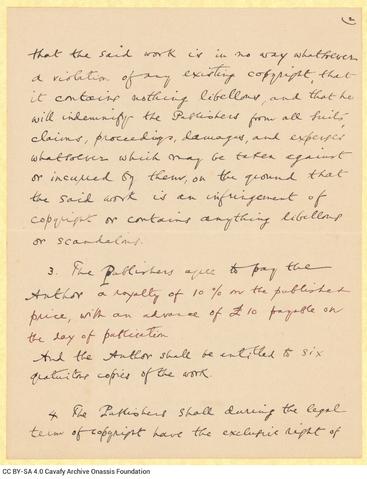 2
that the said work is in no way whatsoever
a violation of any existing copyright, that
it contains nothing libellous, and that he
will indemnify the Publishers from all suits,
claims, proceedings, damages, and expenses
whatsoever which may be taken against
or incurred by them, on the ground that
the said work is an infringement of
copyright or contains anything libellous
or scandalous.
3. The Publishers agree to pay the
Author a royalty of 10% on the published
price, with an advance of £10 payable on
the day of publication
And the Author shall be entitled to six
gratuitous copies of the work.
4 The Publishers shall during the legal
term of copyright have the exclusive right of
CC BY-SA 4.0 Cavafy Archive Onassis Foundation